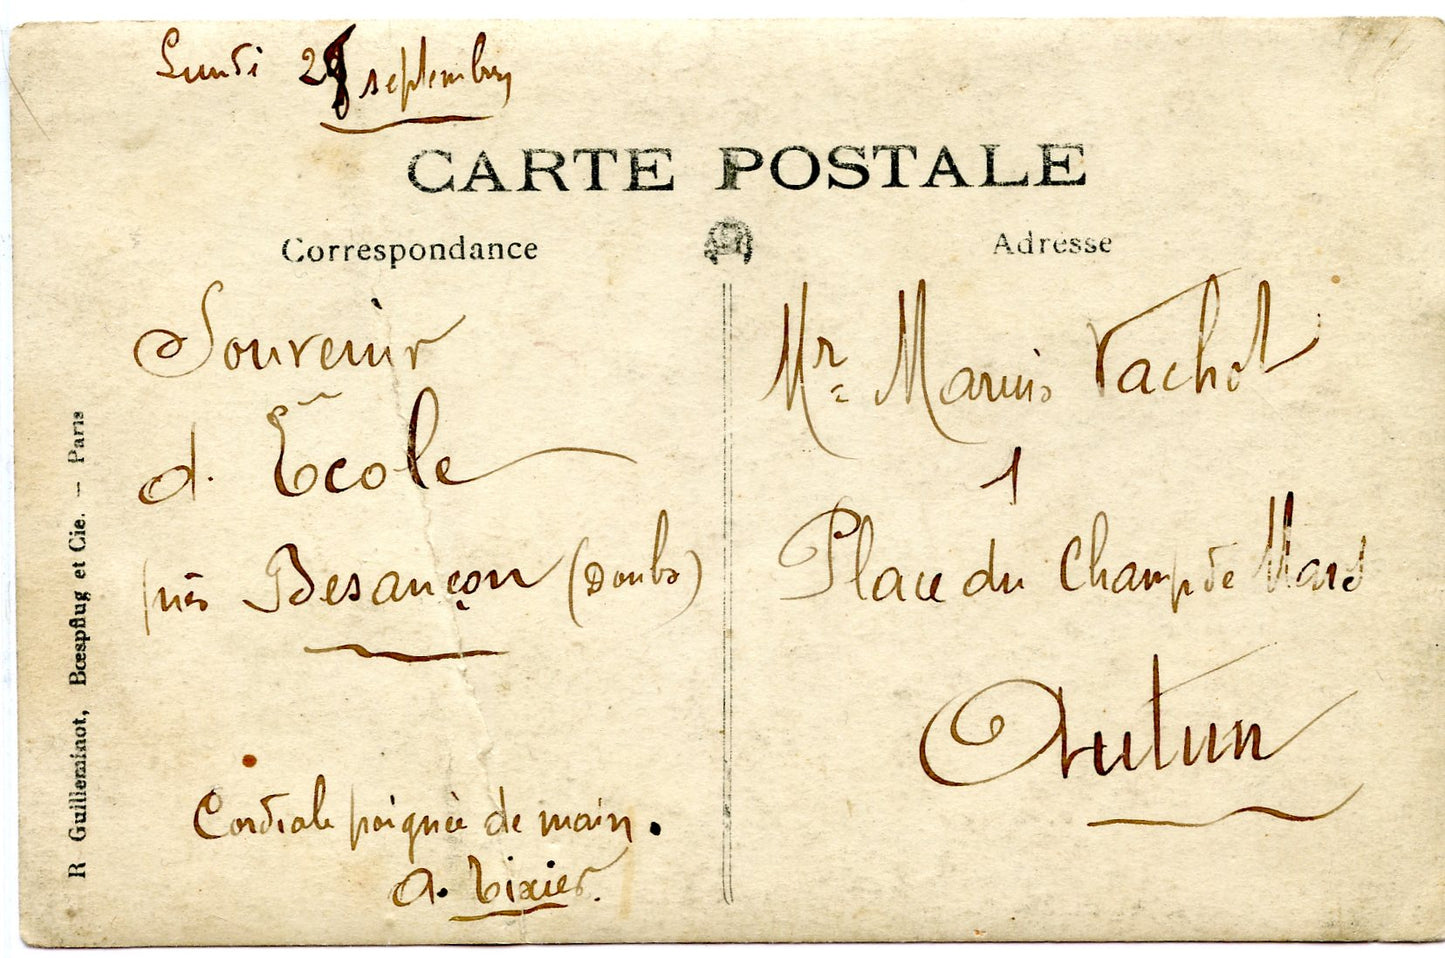 Lundi 28 septembre
CARTE POSTALE
Correspondance
Adresse
Souvenir
d. École
près Besançon (Doubs)
Cordiale poignée de main.
A. Tixier.
Mr Marius Vachot
1
Place du Champ de Mars
Autun
R Guilleminot, Bœspflug et Cie. — Paris